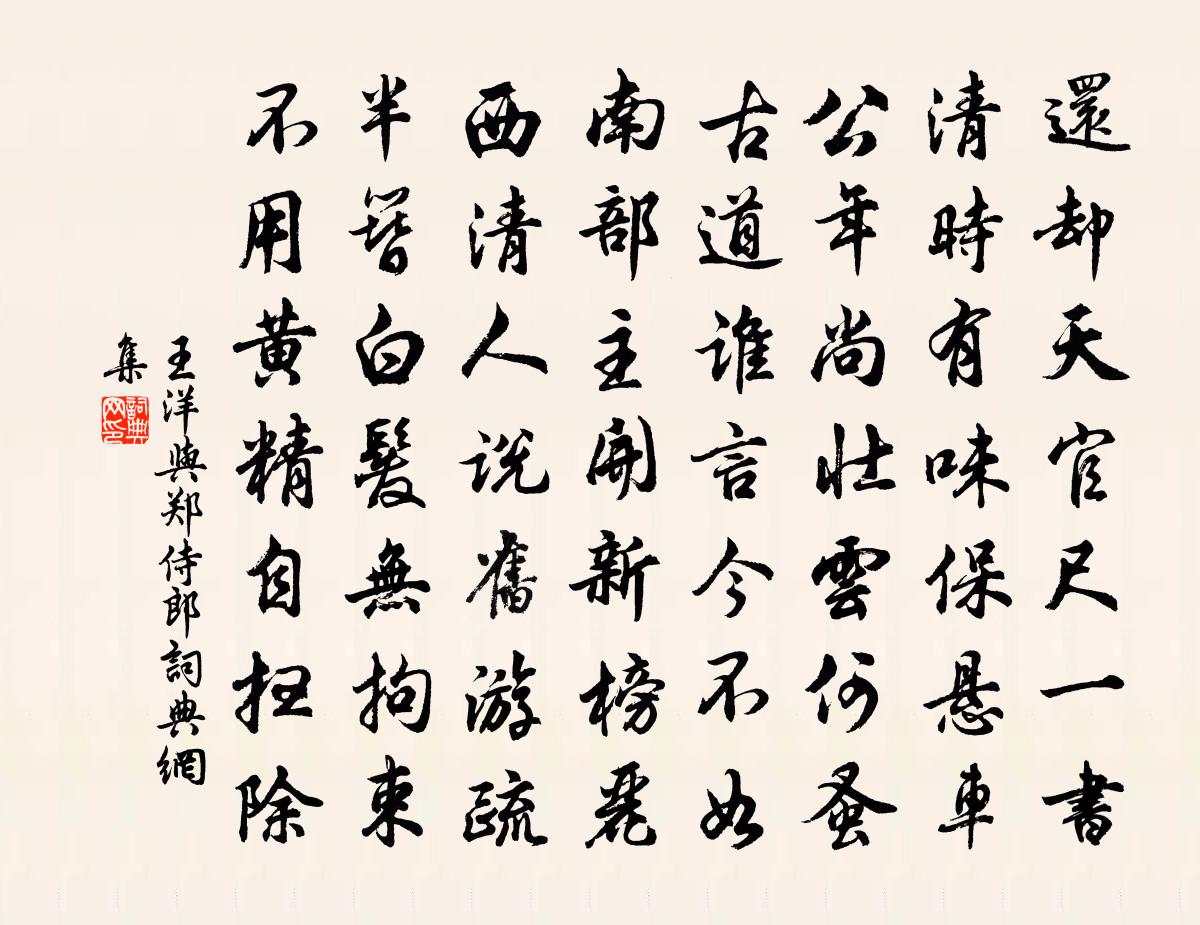 還却天官尺一書
清時有味保懸車
公年尚壯雲何蚤
古道誰言今不如
南部主開新榜麗
西清人説舊游疏
半簪白髮無拘束
不用黃精自扫除
王洋與郑侍郎詞典網
集
詞典網印